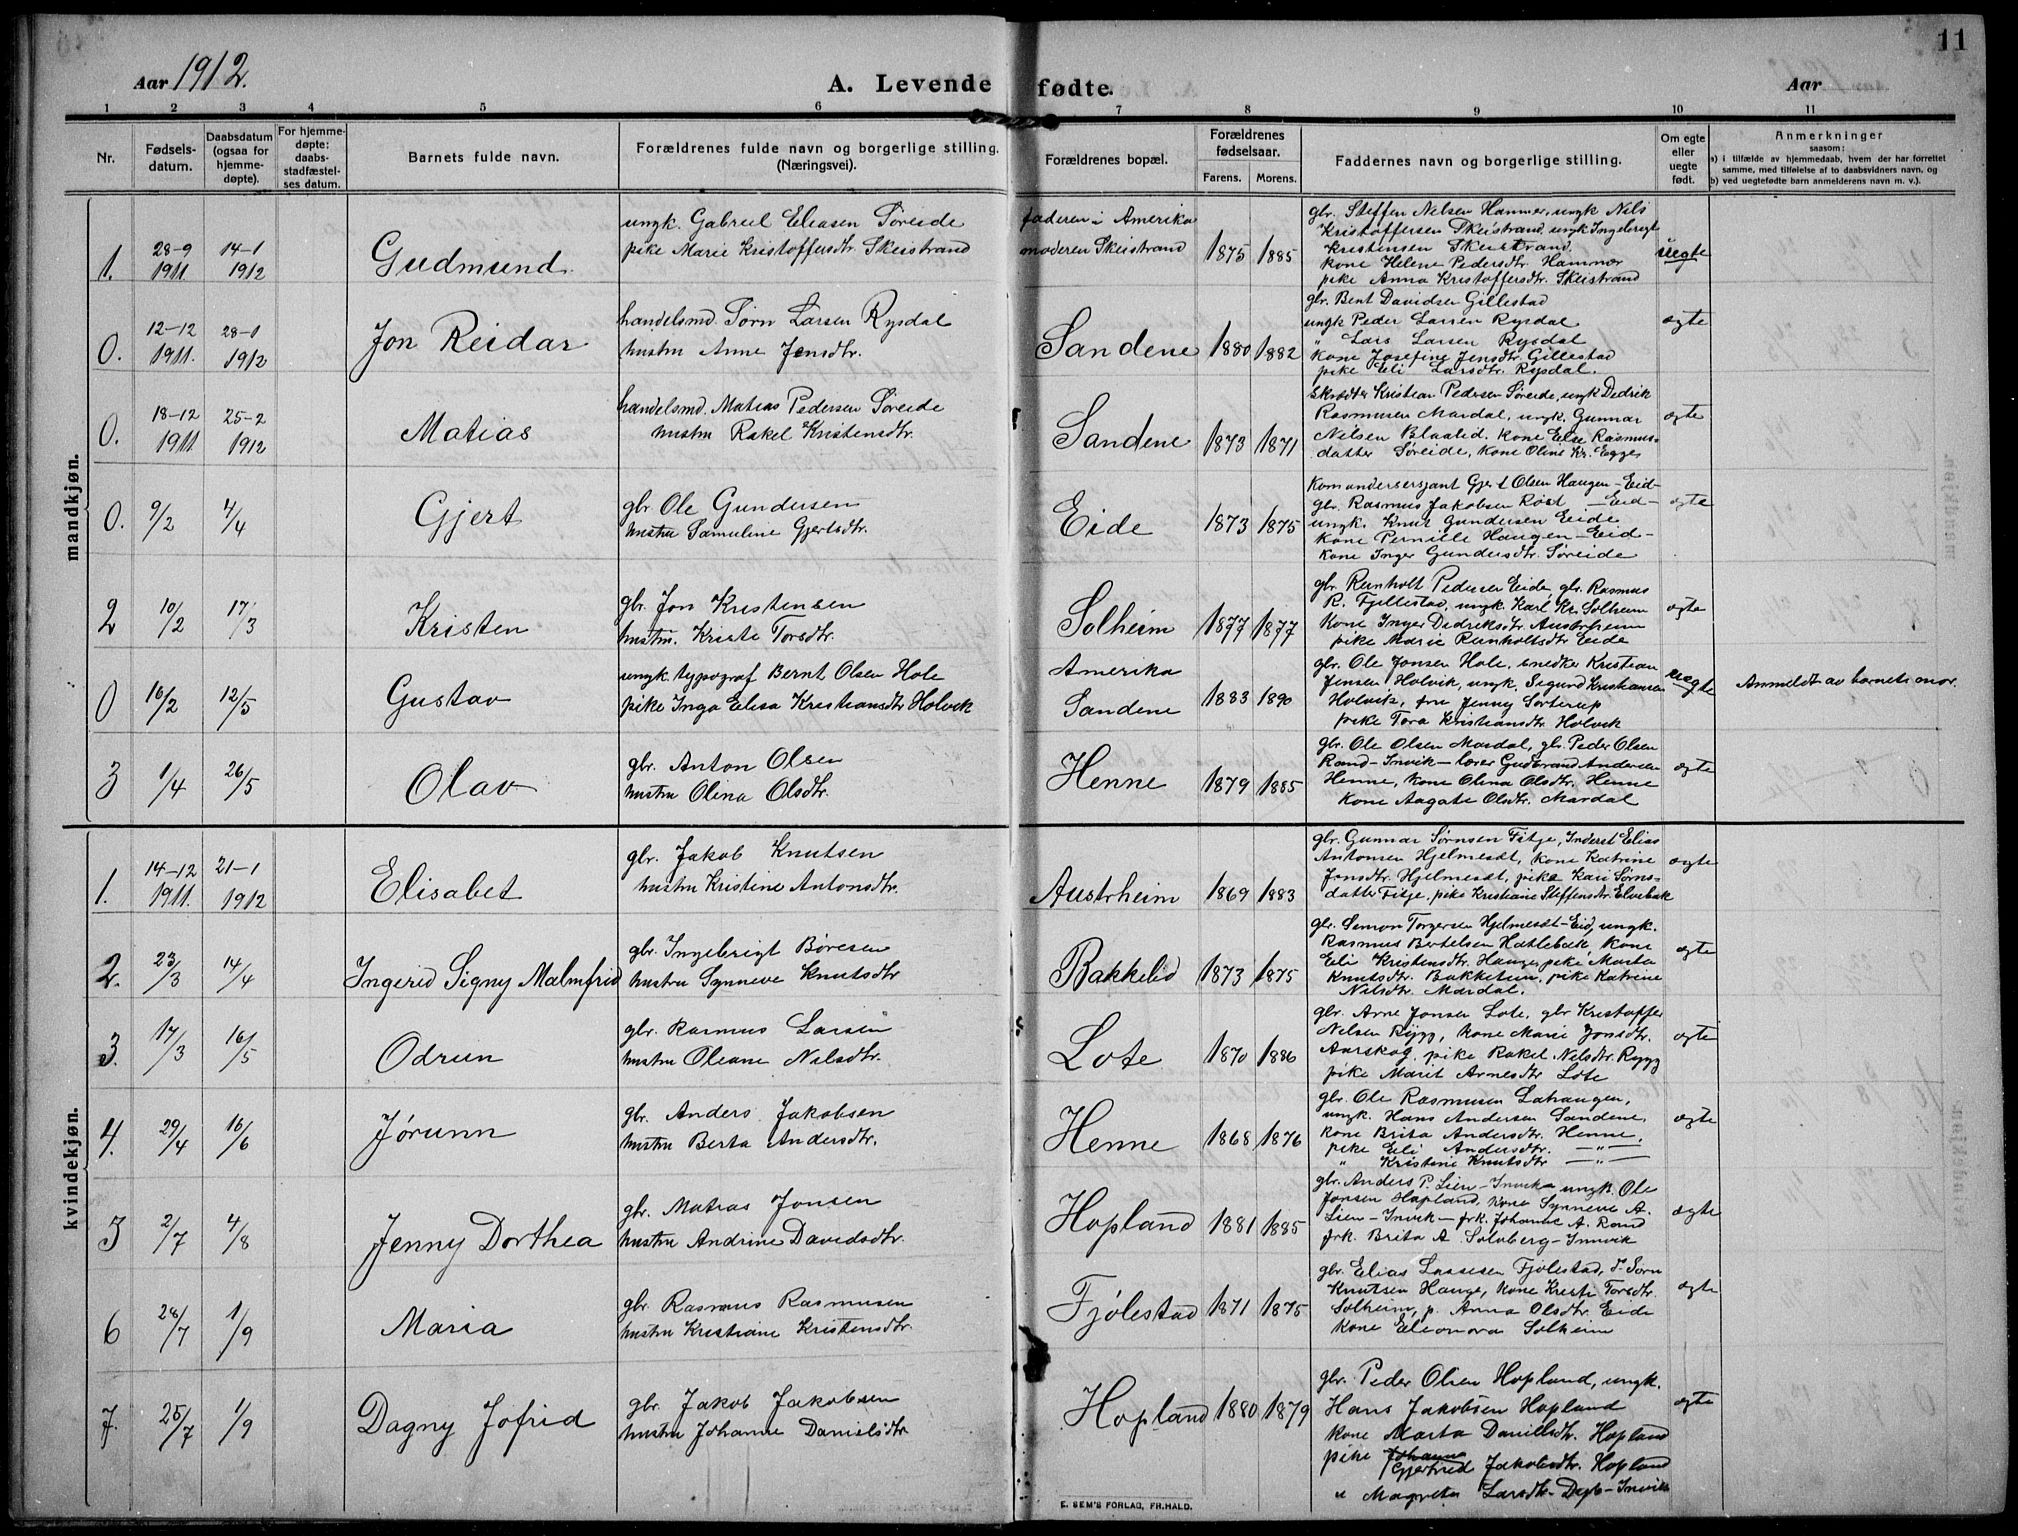 Aar 1912.
A. Levende fødte.
Aar
11
1 2 3 4 5 6 7 8 9 10 11
Nr.
Fødsels-
datum.
Daabsdatum
(ogsaa for
hjemme-
døpte).
For hjemme-
døpte:
daabs-
stadfæstel-
ses datum.
Barnets fulde navn.
Forældrenes fulde navn og borgerlige stilling.
(Næringsvei).
Forældrenes bopæl.
Forældrenes
fødselsaar.
Farens. Morens.
Faddernes navn og borgerlige stilling.
Om egte
eller
uegte
født.
Anmerkninger
saasom:
a) i tilfælde av hjemmedaab, hvem der har forrettet
samme, med tilføielse af to daabsvidners navn, og
b) ved uegtefødte barn anmelderens navn m. v.).
mandkjøn.
1. 28-9 1911. 14-1 1912 Gudmund.
ungk. Gabriel Eliasen Søreide
pike Marie Kristoffersdtr. Skeistrand
faderen i Amerika
moderen Skeistrand 1875 1885
gbr. Steffen Nilsen Hammer, ungk Nils
Kristoffersen Skeistrand, ungk Ingebrigt
Kristensen Skeistrand.
kone Helene Pedersdtr. Hammer
pike Anna Kristoffersdtr. Skeistrand
uegte
0. 12-12 1911. 28-1 1912 Jon Reidar
handelsmd. Sørn Larsen Rysdal
hustru Anne Jensdtr.
Sandene 1880 1882
gbr. Bent Davidsen Gillestad
ungk Peder Larsen Rysdal
" Lars Larsen Rysdal
kone Josefine Jensdtr. Gillestad
pike Eli Larsdtr. Rysdal.
egte
0. 18-12 1911. 25-2 1912 Matias
handelsmd. Matias Pedersen Søreide
hustru Rakel Kristensdtr.
Sandene 1873 1871
Skrædder Kristian Pedersen Søreide, ungk Didrik
Rasmusen Mardal, ungk. Gunnar
Nilsen Blaalid. kone Else Rasmus-
datter Søreide, kone Oline Kr. Egges
egte
0. 9/2 4/4 Gjert
gbr Ole Gundersen
hustru Samuline Gjertsdtr.
Eide 1873 1875
Komandersersjant Gjert Olsen Haugen - Eid-
gbr. Rasmus Jakobsen Røst - Eid-
ungk. Knut Gundersen Eide
kone Pernille Haugen - Eid-
kone Inger Gundersdtr. Søreide
egte
2 10/2 17/3 Kristen
gbr. Jon Kristensen
hustru. Kristi Torsdtr.
Solheim 1877 1877
gbr. Reinholt Pedersen Eide, gbr. Rasmus
R. Fjellestad, ungk. Karl Kr. Solheim
kone Inger Didriksdtr. Austrheim
pike Marie Reinholtsdtr Eide
egte
0 16/2 12/5 Gustav
ungk. typograf Bernt Olsen Hole
pike Inga Elisa Kristiansdtr Holvik
Amerika
Sandene 1883 1890
gbr. Ole Jonsen Hole, snedker Kristian
Jensen Holvik, ungk. Sigurd Kristiansen
Holvik, fru Jenny Sorterup
pike Tora Kristiansdtr. Holvik
uegte
Anmeldt av barnets mor.
3 1/4 26/5 Olav
gbr. Anton Olsen
hustru Olina Olsdtr.
Henne 1879 1885
gbr. Ole Olsen Mardal, gbr. Peder Olsen
Rand - Invik - lærer Gudbrand Andersen
Henne, kone Olina Olsdtr. Henne
kone Aagate Olsdtr. Mardal
egte
kvindekjøn.
1. 14-12 1911. 21-1 1912 Elisabet
gbr. Jakob Knutsen
hustru Kristine Antonsdtr.
Austrheim 1869 1883
gbr. Gunnar Sørnsen Fitje, Inderst Elias
Antonsen Hjelmesdt, kone Katrine
Jonsdtr. Hjelmesdt, pike Kari Sørns-
datter Fitje, pike Kristiane Steffensdtr. Elvebak
egte
2. 23/3 14/4 Ingerid Signy Malmfrid
gbr. Ingebrigt Børesen
hustru Synneve Knutsdtr
Bakkelid 1873 1875
gbr. Simon Torgersen Hjelmesdt - Eid, ungk.
Rasmus Bertelsen Hatlebak, kone
Eli Kristensdtr. Hauge, pike Marta
Knutsdtr. Bakketun, pike Katrine
Nilsdtr. Mardal.
egte
3. 17/3 16/5 Odrun
gbr. Rasmus Larsen
hustru Oleane Nilsdtr.
Lote 1870 1886
gbr. Arne Jonsen Lote, gbr Kristoffer
Nilsen Rygg, kone Marie Jonsdtr.
Aarskog, pike Rakel Nilsdtr. Rygg
pike Marit Arnesdtr Lote
egte
4. 29/4 16/6 Jørunn
gbr. Anders Jakobsen
hustru Berta Andersdtr.
Henne 1868 1876
gbr. Ole Rasmusen Lahaugen,
ungk. Hans Andersen Sandene.
kone Brita Andersdtr. Henne.
pike Eli Andersdtr. — " —
" Kristine Knutsdtr — " —
egte
5 2/7 4/8 Jenny Dorthea
gbr. Matias Jonsen
hustru Andrine Davidsdtr.
Hopland 1881 1885
gbr. Anders P. Lien - Invik - ungk. Ole
Jonsen Hopland. kone Synneve A.
Lien - Invik - frk. Johanne A. Rand
frk. Brita A. Solvberg - Innvik
egte
6 28/7 1/9 Maria
gbr. Rasmus Rasmusen
hustru Kristiane Kristensdtr.
Fjølestad 1871 1875
gbr. Elias Lassesen Fjølestad, Sørn
Knutsen Hauge, kone Kristi Torsdtr.
Solheim, p. Anna Olsdtr. Eide
kone Eleonora Solheim
egte
7. 25/7 1/9 Dagny Jofrid
gbr. Jakob Jakobsen
hustru Johanne Danielsdtr
Hopland 1880 1879
gbr. Peder Olsen Hopland, ungk.
Hans Jakobsen Hopland
kone Marta Danielsdtr. Hopland
pike Johanne Gjertrud Jakobsdtr. Hopland
" Magreta Larsdtr - - Invik
egte
E. SEM'S FORLAG, FR.HALD.